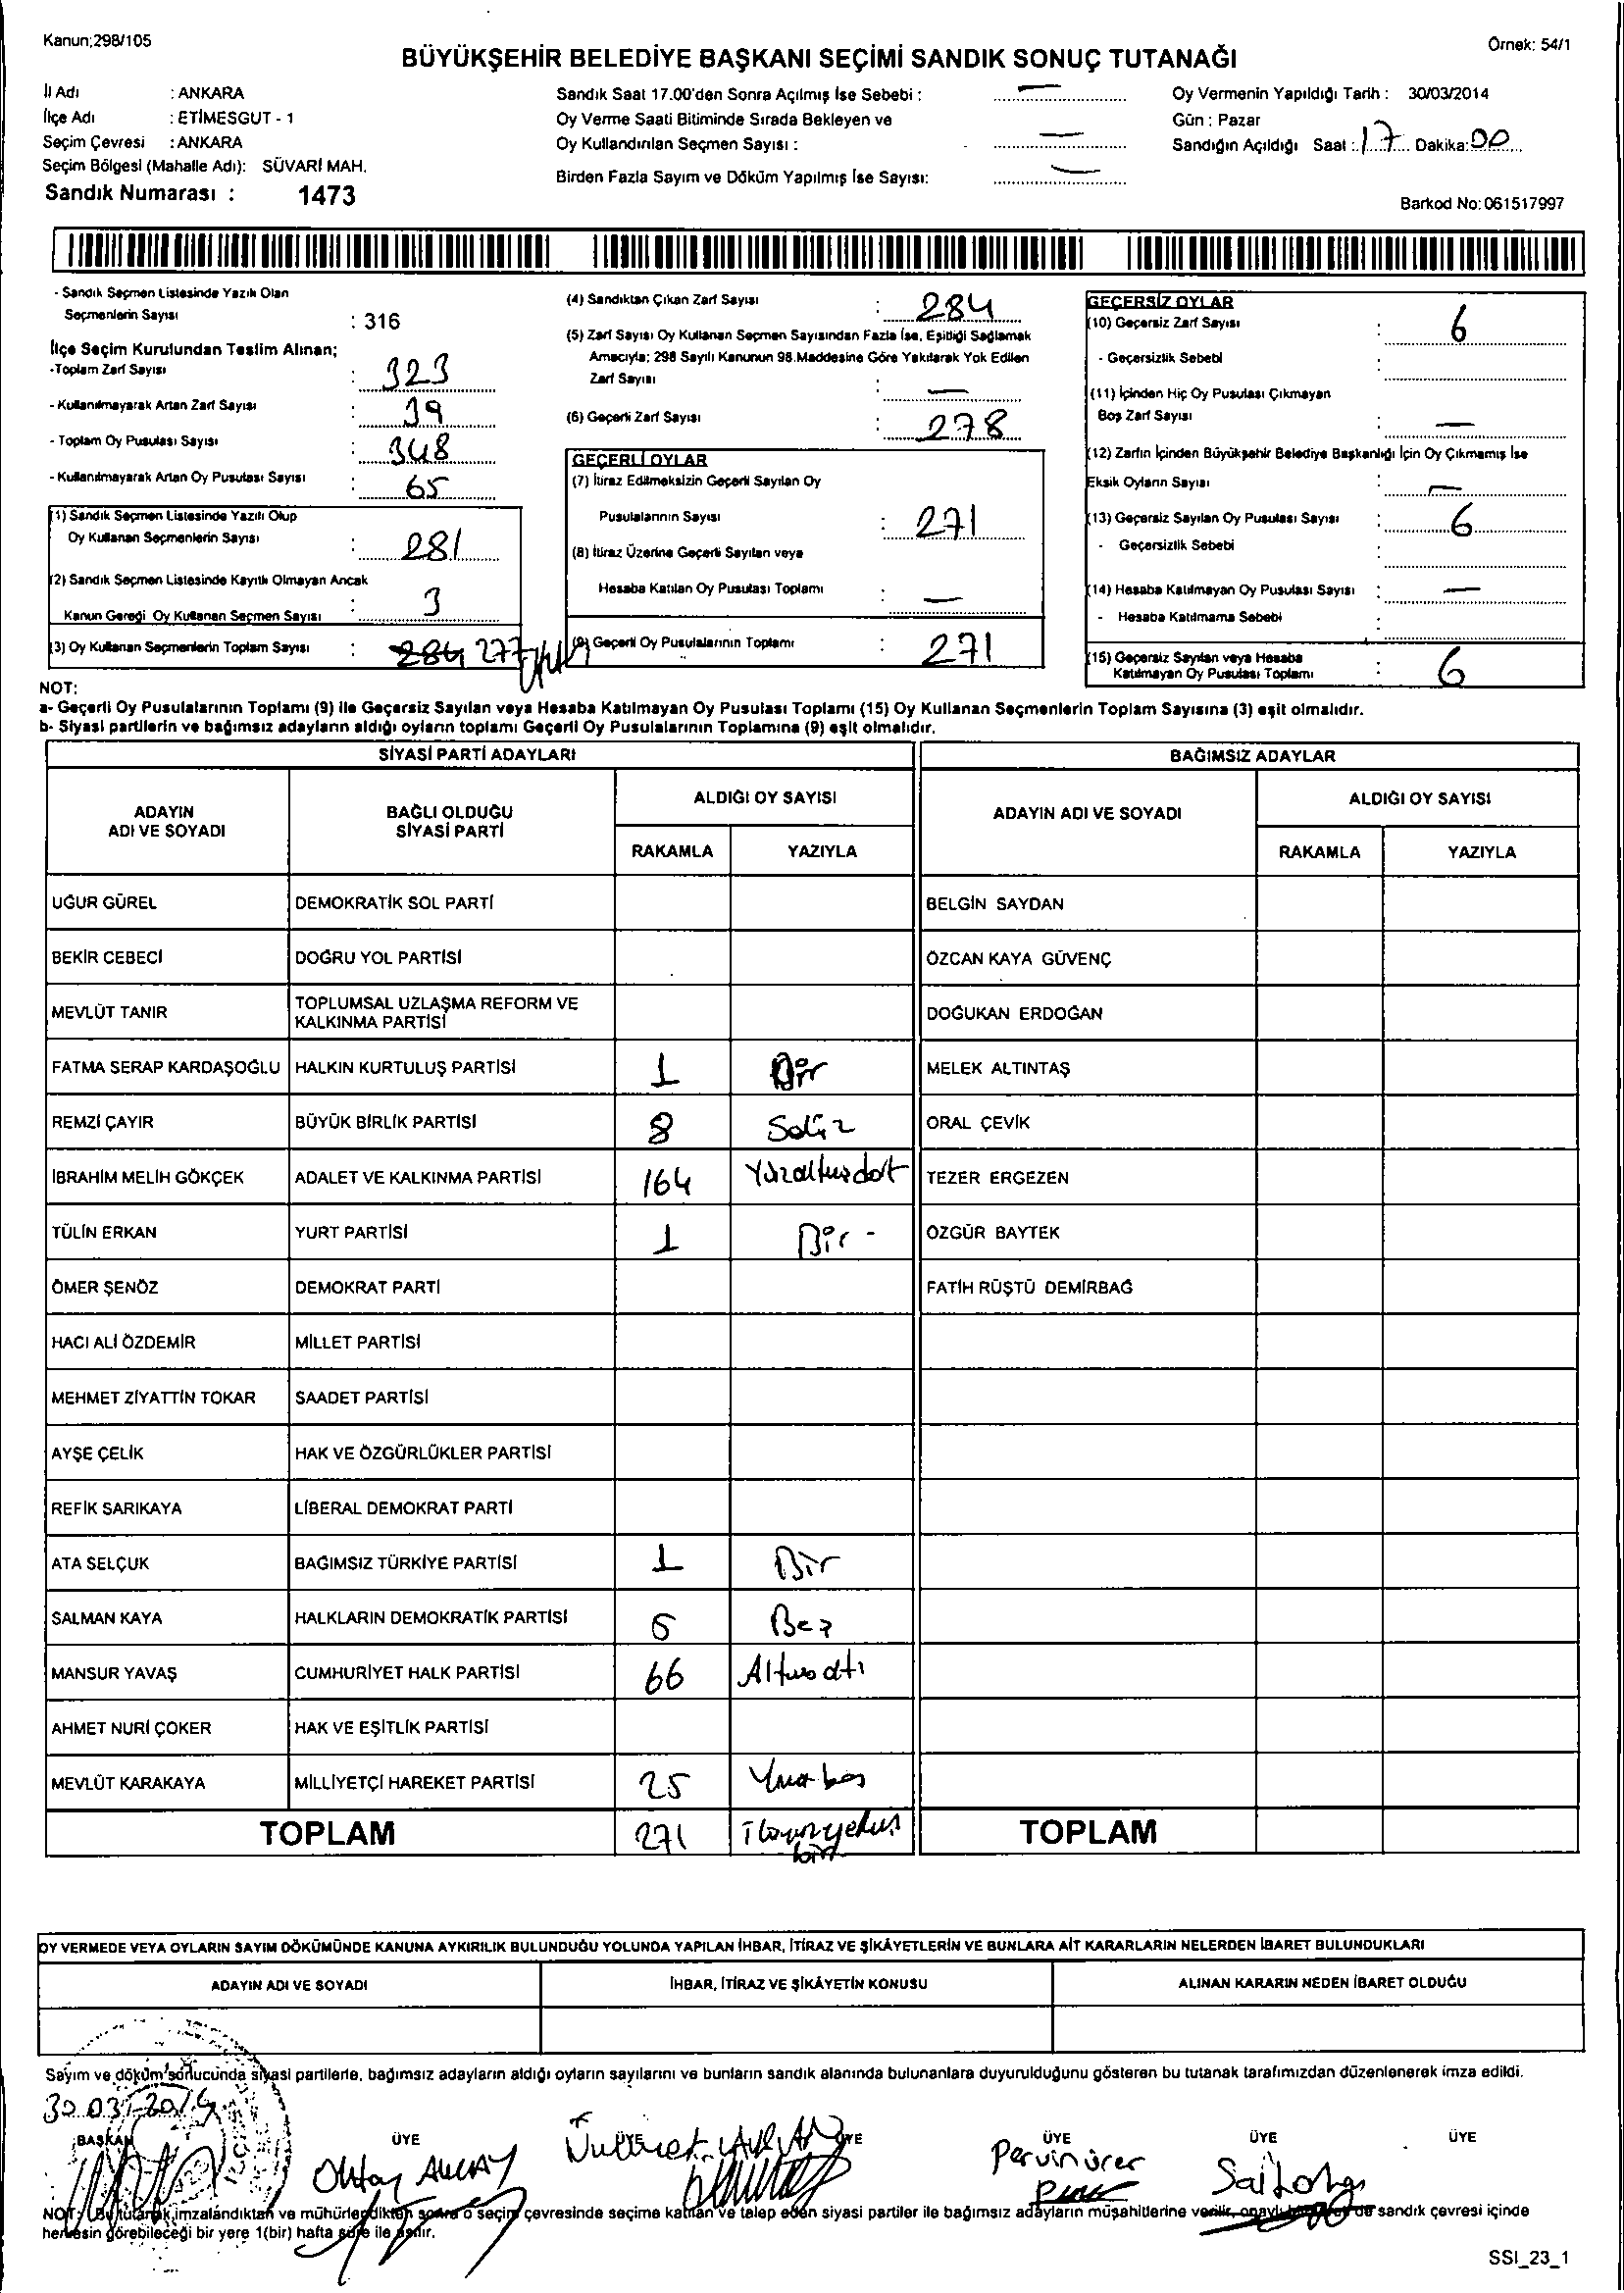 Kanun;298/105
Örnek: 54/1
BÜYÜKŞEHİR BELEDİYE BAŞKANI SEÇİMİ SANDIK SONUÇ TUTANAĞI
İl Adı : ANKARA
İlçe Adı : ETİMESGUT - 1
Seçim Çevresi : ANKARA
Seçim Bölgesi (Mahalle Adı): SÜVARİ MAH.
Sandık Numarası : 1473
Sandık Saat 17.00'den Sonra Açılmış İse Sebebi : —
Oy Verme Saati Bitiminde Sırada Bekleyen ve
Oy Kullandırılan Seçmen Sayısı : —
Birden Fazla Sayım ve Döküm Yapılmış İse Sayısı: —
Oy Vermenin Yapıldığı Tarih : 30/03/2014
Gün : Pazar
Sandığın Açıldığı Saat : 17 Dakika: 00
Barkod No: 061517997
- Sandık Seçmen Listesinde Yazılı Olan
Seçmenlerin Sayısı : 316
İlçe Seçim Kurulundan Teslim Alınan;
-Toplam Zarf Sayısı : 323
- Kullanılmayarak Artan Zarf Sayısı : 39
- Toplam Oy Pusulası Sayısı : 348
- Kullanılmayarak Artan Oy Pusulası Sayısı : 65
(1) Sandık Seçmen Listesinde Yazılı Olup
Oy Kullanan Seçmenlerin Sayısı : 281
(2) Sandık Seçmen Listesinde Kayıtlı Olmayan Ancak
Kanun Gereği Oy Kullanan Seçmen Sayısı : 3
(3) Oy Kullanan Seçmenlerin Toplam Sayısı : 284 277
(4) Sandıktan Çıkan Zarf Sayısı : 284
(5) Zarf Sayısı Oy Kullanan Seçmen Sayısından Fazla İse, Eşitliği Sağlamak
Amacıyla; 298 Sayılı Kanunun 98.Maddesine Göre Yakılarak Yok Edilen
Zarf Sayısı : —
(6) Geçerli Zarf Sayısı : 278
GEÇERLİ OYLAR
(7) İtiraz Edilmeksizin Geçerli Sayılan Oy
Pusulalarının Sayısı : 271
(8) İtiraz Üzerine Geçerli Sayılan veya
Hesaba Katılan Oy Pusulası Toplamı : —
(9) Geçerli Oy Pusulalarının Toplamı : 271
GEÇERSİZ OYLAR
(10) Geçersiz Zarf Sayısı : 6
- Geçersizlik Sebebi :
(11) İçinden Hiç Oy Pusulası Çıkmayan
Boş Zarf Sayısı : —
(12) Zarfın İçinden Büyükşehir Belediye Başkanlığı İçin Oy Çıkmamış İse
Eksik Oyların Sayısı : —
(13) Geçersiz Sayılan Oy Pusulası Sayısı : 6
- Geçersizlik Sebebi :
(14) Hesaba Katılmayan Oy Pusulası Sayısı : —
- Hesaba Katılmama Sebebi :
(15) Geçersiz Sayılan veya Hesaba
Katılmayan Oy Pusulası Toplamı : 6
NOT:
a- Geçerli Oy Pusulalarının Toplamı (9) ile Geçersiz Sayılan veya Hesaba Katılmayan Oy Pusulası Toplamı (15) Oy Kullanan Seçmenlerin Toplam Sayısına (3) eşit olmalıdır.
b- Siyasi partilerin ve bağımsız adayların aldığı oyların toplamı Geçerli Oy Pusulalarının Toplamına (9) eşit olmalıdır.
SİYASİ PARTİ ADAYLARI BAĞIMSIZ ADAYLAR
ADAYIN ADI VE SOYADI BAĞLI OLDUĞU SİYASİ PARTİ ALDIĞI OY SAYISI ADAYIN ADI VE SOYADI ALDIĞI OY SAYISI
RAKAMLA YAZIYLA RAKAMLA YAZIYLA
UĞUR GÜREL DEMOKRATİK SOL PARTİ BELGİN SAYDAN
BEKİR CEBECİ DOĞRU YOL PARTİSİ ÖZCAN KAYA GÜVENÇ
MEVLÜT TANIR TOPLUMSAL UZLAŞMA REFORM VE KALKINMA PARTİSİ DOĞUKAN ERDOĞAN
FATMA SERAP KARDAŞOĞLU HALKIN KURTULUŞ PARTİSİ 1 Bir MELEK ALTINTAŞ
REMZİ ÇAYIR BÜYÜK BİRLİK PARTİSİ 8 Sekiz ORAL ÇEVİK
İBRAHİM MELİH GÖKÇEK ADALET VE KALKINMA PARTİSİ 164 Yüzaltmışdört TEZER ERGEZEN
TÜLİN ERKAN YURT PARTİSİ 1 Bir - ÖZGÜR BAYTEK
ÖMER ŞENÖZ DEMOKRAT PARTİ FATİH RÜŞTÜ DEMİRBAĞ
HACI ALİ ÖZDEMİR MİLLET PARTİSİ
MEHMET ZİYATTİN TOKAR SAADET PARTİSİ
AYŞE ÇELİK HAK VE ÖZGÜRLÜKLER PARTİSİ
REFİK SARIKAYA LİBERAL DEMOKRAT PARTİ
ATA SELÇUK BAĞIMSIZ TÜRKİYE PARTİSİ 1 Bir
SALMAN KAYA HALKLARIN DEMOKRATİK PARTİSİ 5 Beş
MANSUR YAVAŞ CUMHURİYET HALK PARTİSİ 66 Altmışaltı
AHMET NURİ ÇOKER HAK VE EŞİTLİK PARTİSİ
MEVLÜT KARAKAYA MİLLİYETÇİ HAREKET PARTİSİ 25 Yirmibeş
TOPLAM 271 İkiyüzyetmiş bir TOPLAM
OY VERMEDE VEYA OYLARIN SAYIM DÖKÜMÜNDE KANUNA AYKIRILIK BULUNDUĞU YOLUNDA YAPILAN İHBAR, İTİRAZ VE ŞİKÂYETLERİN VE BUNLARA AİT KARARLARIN NELERDEN İBARET BULUNDUKLARI
ADAYIN ADI VE SOYADI İHBAR, İTİRAZ VE ŞİKÂYETİN KONUSU ALINAN KARARIN NEDEN İBARET OLDUĞU
Sayım ve döküm sonucunda siyasi partilerle, bağımsız adayların aldığı oyların sayılarını ve bunların sandık alanında bulunanlara duyurulduğunu gösteren bu tutanak tarafımızdan düzenlenerek imza edildi.
30.03.2014
BAŞKAN ÜYE ÜYE ÜYE ÜYE ÜYE ÜYE
Oktay Pervin ürer
NOT: Bu tutanak imzalandıktan ve mühürlendikten sonra o seçim çevresinde seçime katılan ve talep eden siyasi partiler ile bağımsız adayların müşahitlerine verilir, sandık çevresi içinde
herkesin görebileceği bir yere 1(bir) hafta süre ile asılır.
SSI_23_1